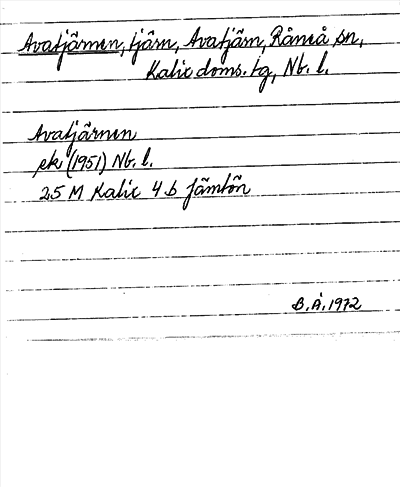 Avatjärnen, tjärn, Avatjärn, Råneå sn,
Kalix doms. tg, Nb. l.
Avatjärnen
ek (1951) Nb. l.
25 M Kalix 4 b Jämtön
B. Å. 1972